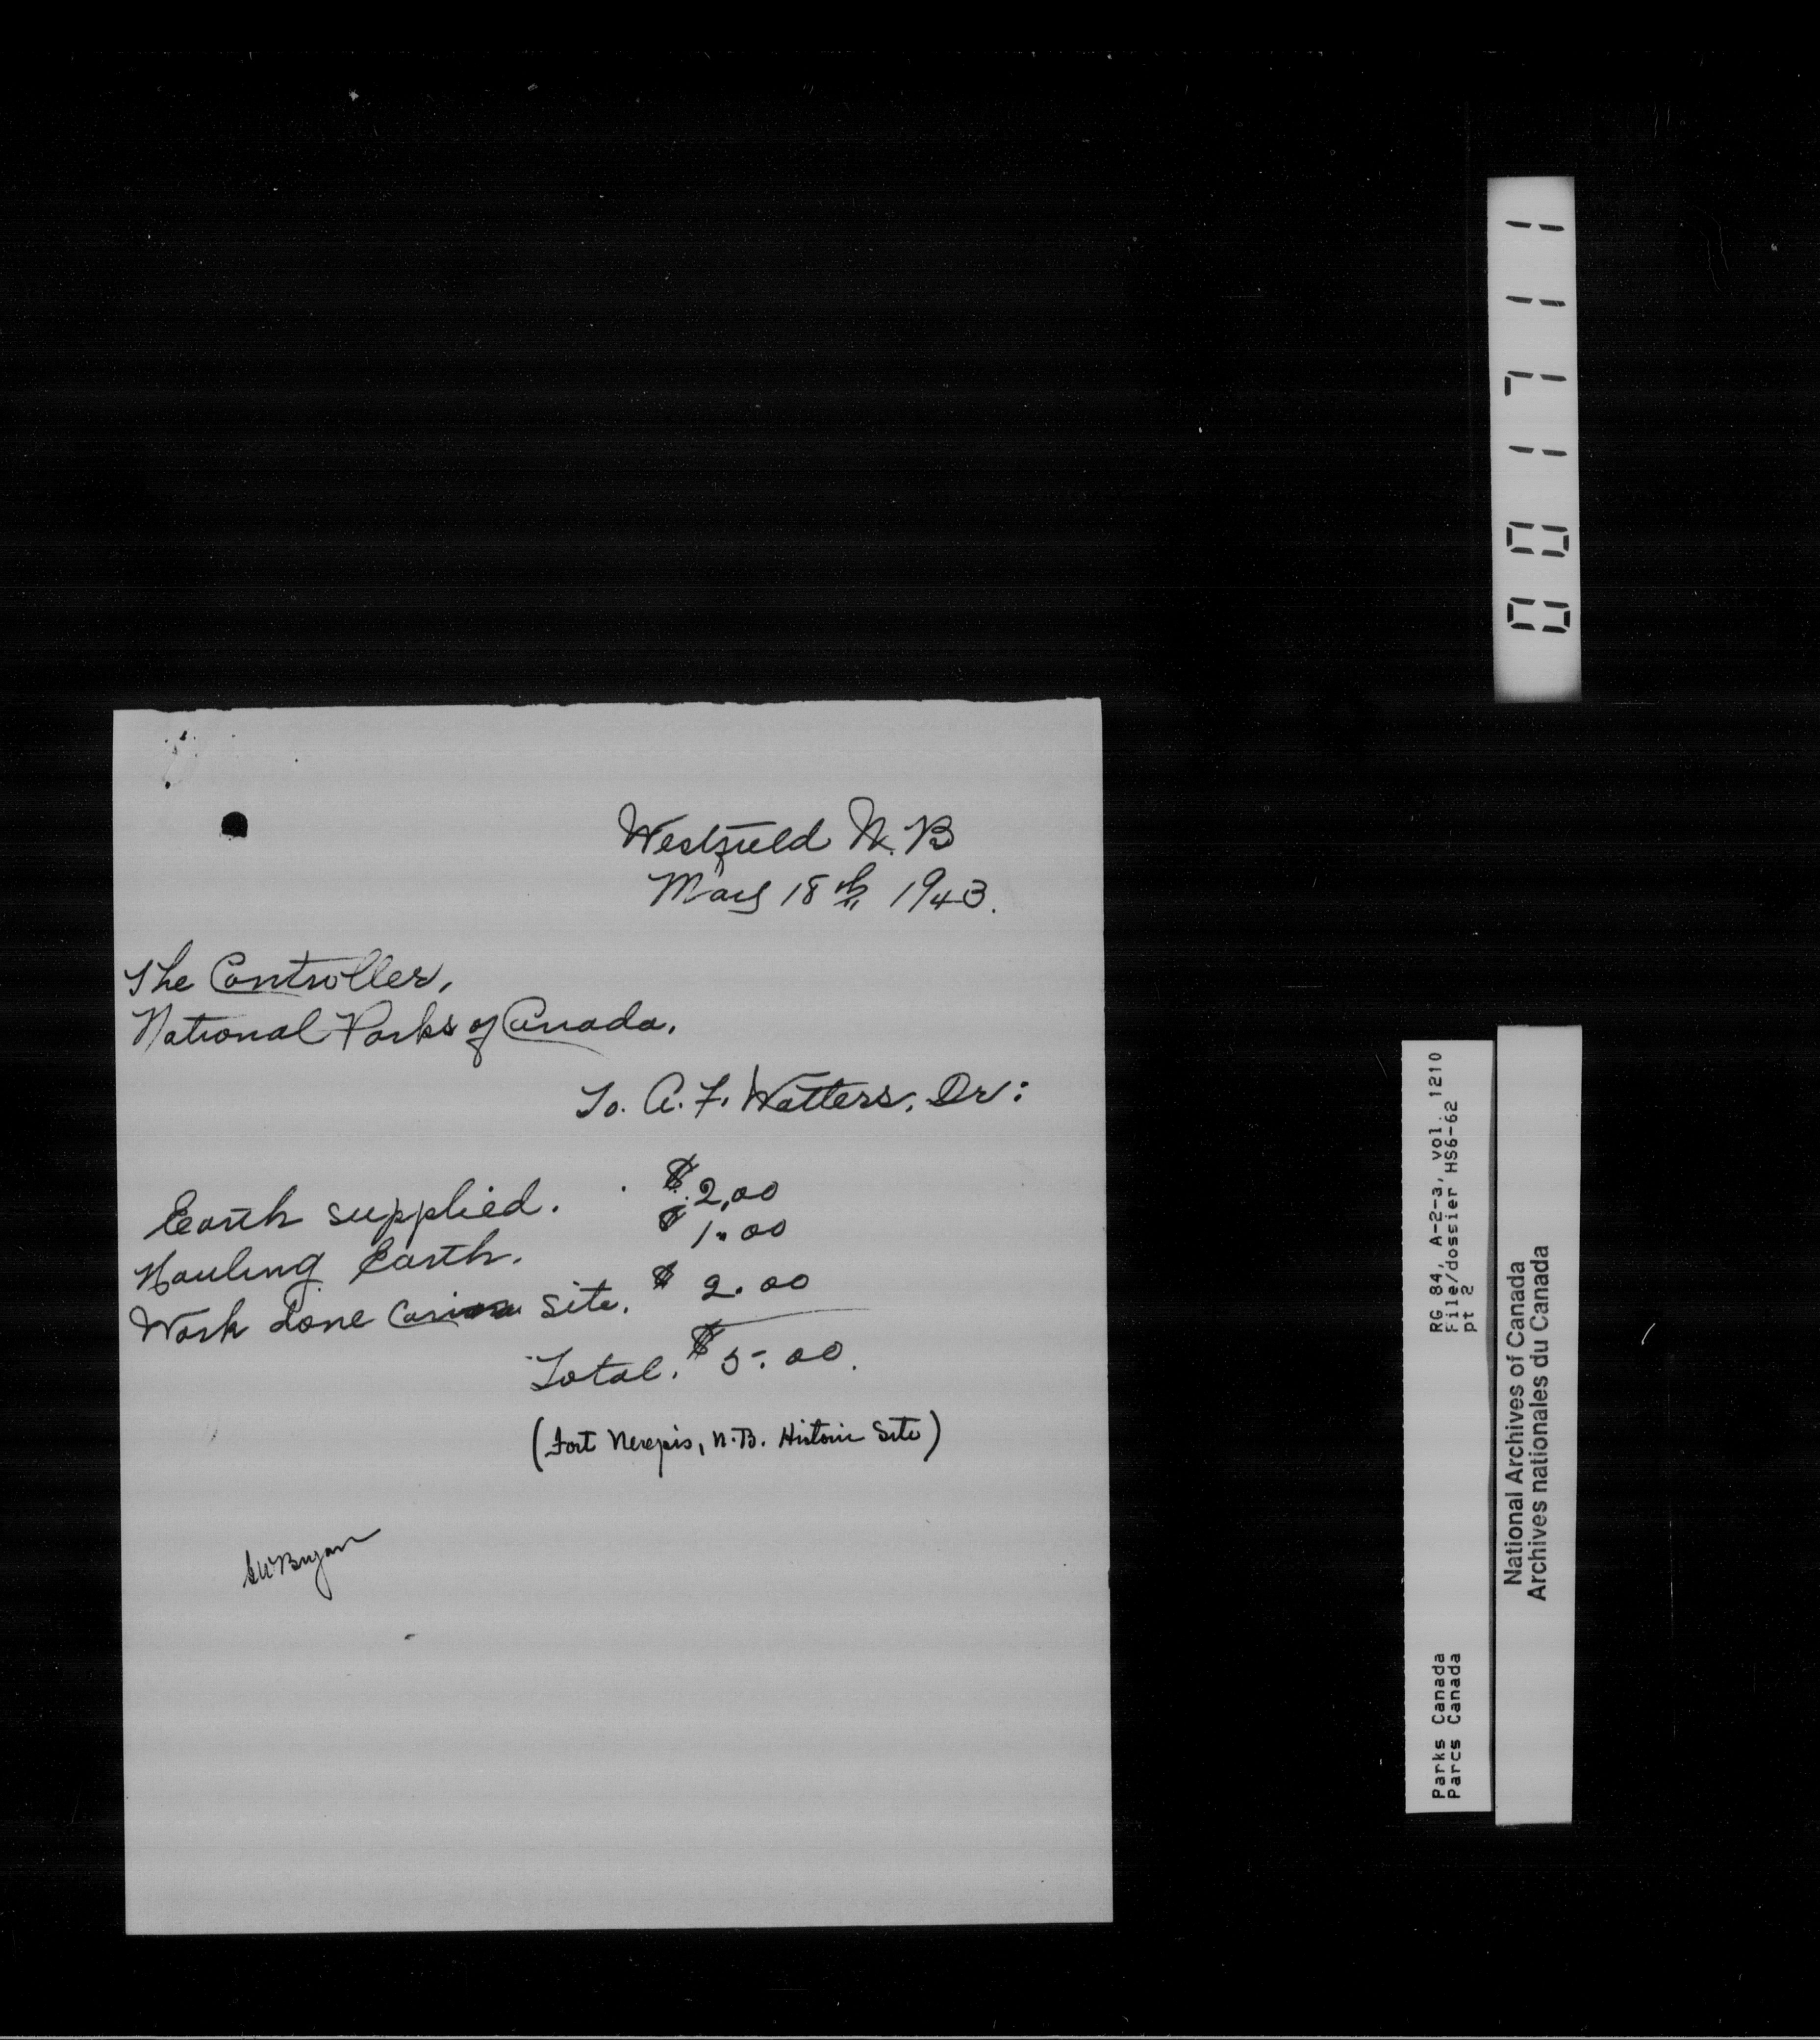 Westfield N. B
May 18th 1943.
The Controller,
National Parks of Canada.
To. A. F. Watters. Dr:
Earth supplied. $2.00
Hauling Earth. $1.00
Work done site. $2.00
Total. $5.00.
(Fort Nerepis, N.B. Historic Site)
Bryan
001711
RG 84, A-2-a, vol. 1210
File/dossier HS6-62
pt 2
Parks Canada
Parcs Canada
National Archives of Canada
Archives nationales du Canada